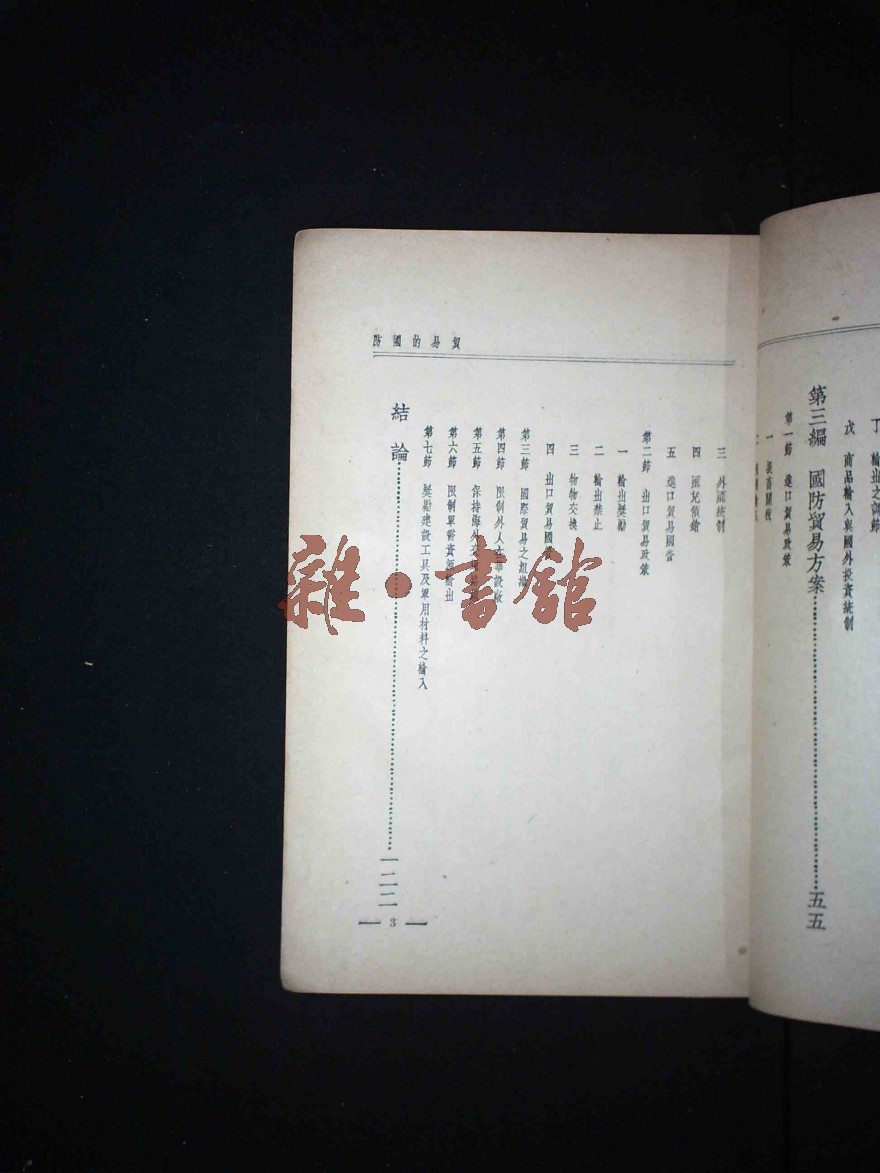 丁 輸出之調節
戊 商品輸入與國外投資統制
第三編 國防貿易方案……五五
第一節 進口貿易政策
一 提高關稅
貿易的國防
三 外匯統制
四 匯兌傾銷
五 進口貿易國營
第二節 出口貿易政策
一 輸出獎勵
二 輸出禁止
三 物物交換
四 出口貿易國
第三節 國際貿易之組織
第四節 限制外人在華設廠
第五節 保持海外
第六節 限制軍需資源輸出
第七節 獎勵建設工具及軍用材料之輸入
結論……一二二
3
雜·書館